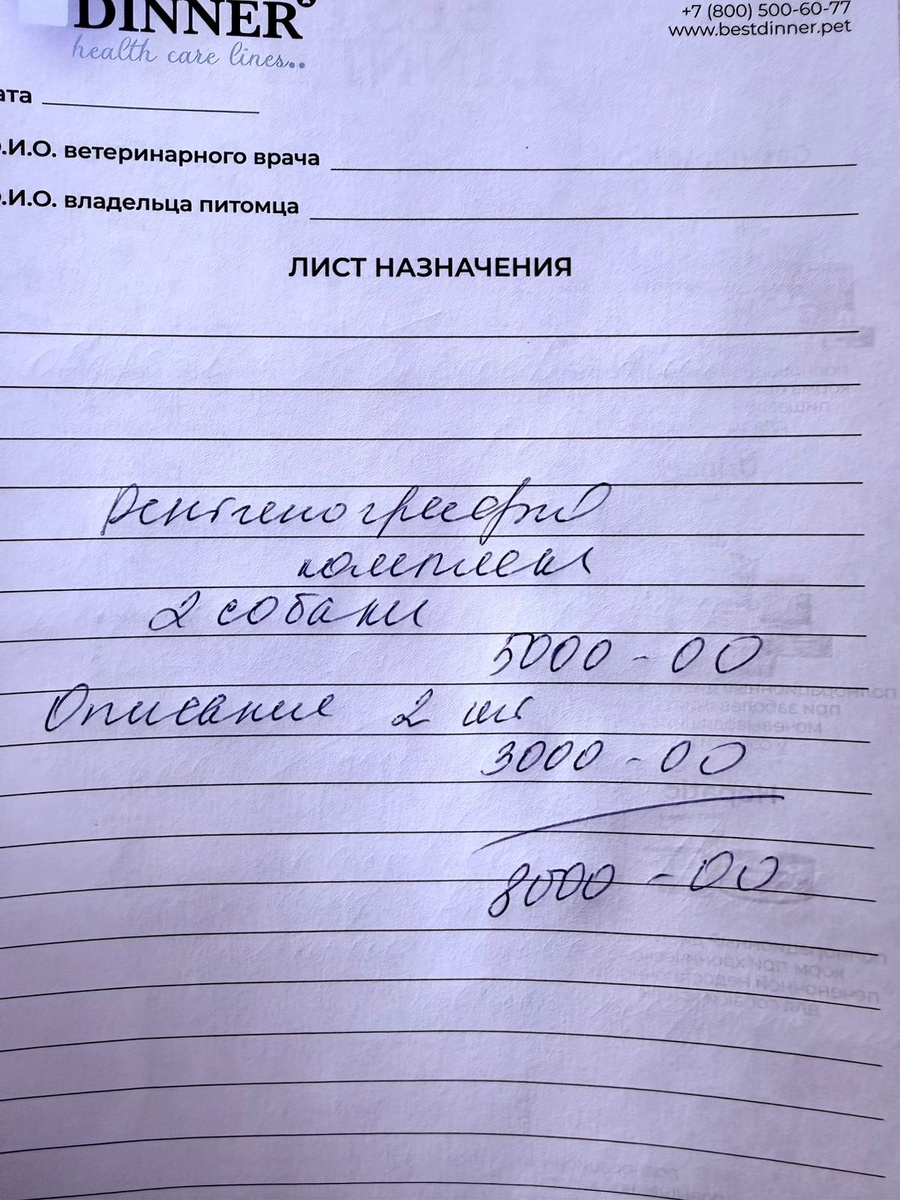 DINNER®
health care lines...
+7 (800) 500-60-77
www.bestdinner.pet
ата
.И.О. ветеринарного врача
.И.О. владельца питомца
ЛИСТ НАЗНАЧЕНИЯ
Рентгенография
комплекс
2 собаки
5000-00
Описание 2 шт
3000-00
8000-00